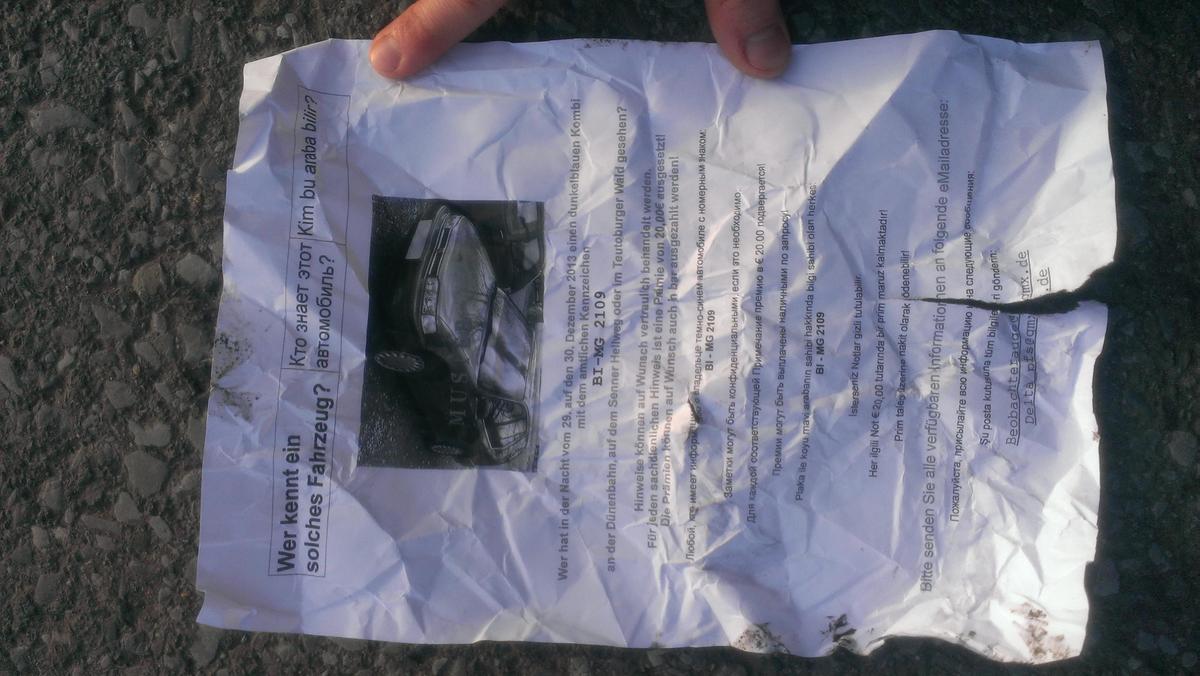 Wer kennt ein
solches Fahrzeug?
Кто знает этот
автомобиль?
Kim bu araba bilir?
MUS
Wer hat in der Nacht vom 29. auf den 30. Dezember 2013 einen dunkelblauen Kombi
mit dem amtlichen Kennzeichen
BI-MG 2109
an der Dünenbahn, auf dem Senner Hellweg oder im Teutoburger Wald gesehen?
Hinweise können auf Wunsch vertraulich behandelt werden.
Für jeden sachdienlichen Hinweis ist eine Prämie von 20,00€ ausgesetzt!
Die Prämien können auf Wunsch auch in bar ausgezahlt werden!
Любой, кто имеет владельце темно-синем автомобиле с номерным знаком:
BI - MG 2109
Заметки могут быть конфиденциальными, если это необходимо.
Для каждой соответствующей Примечание премию в € 20.00 подвергается!
Премии могут быть выплачены наличными по запросу!
Plaka ile koyu mavi arabanın sahibi hakkında bilgi sahibi olan herkes:
BI - MG 2109
İsterseniz Notlar gizli tutulabilir.
Her ilgili Not € 20,00 tutarında bir prim maruz kalmaktadır!
Prim talep üzerine nakit olarak ödenebilir!
Bitte senden Sie alle verfügbaren Informationen an folgende eMailadresse:
Пожалуйста, присылайте всю информацию на следующие сообщения:
Şu posta kutusuna tüm bilgileri gönderin:
.de
.de